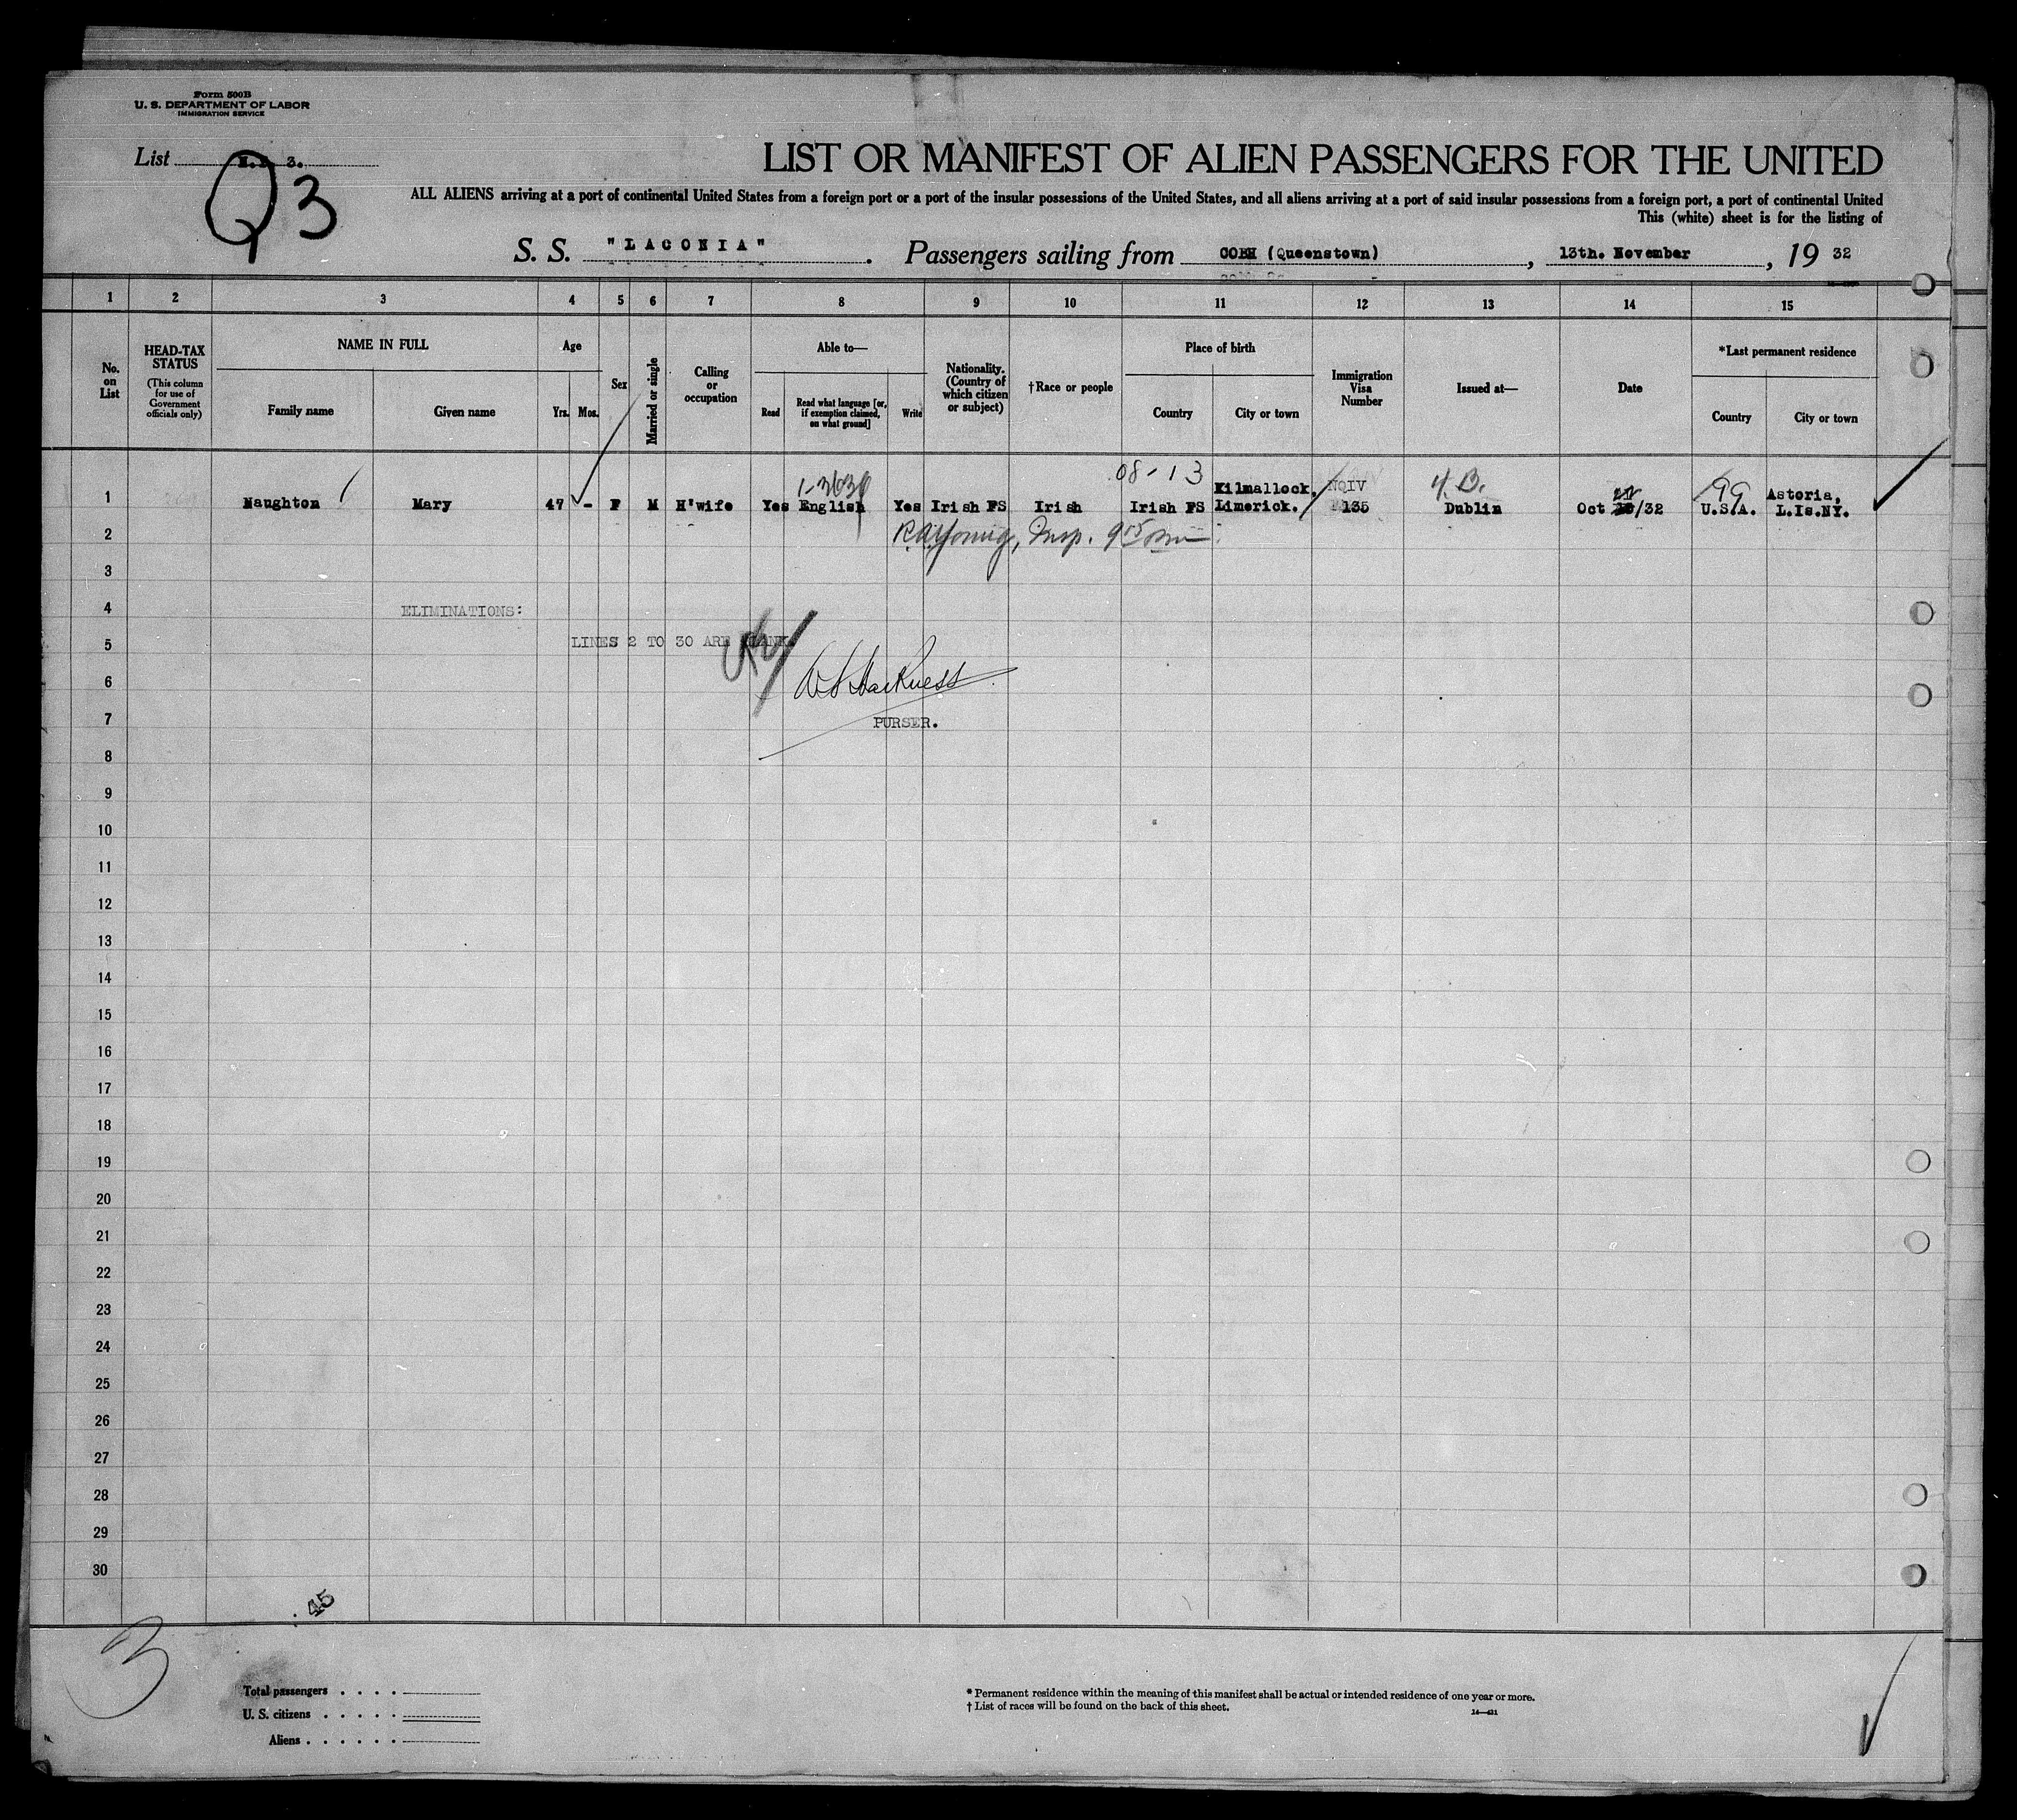 Form 500B
U. S. DEPARTMENT OF LABOR
IMMIGRATION SERVICE
List 3.
Q3
LIST OR MANIFEST OF ALIEN PASSENGERS FOR THE UNITED
ALL ALIENS arriving at a port of continental United States from a foreign port or a port of the insular possessions of the United States, and all aliens arriving at a port of said insular possessions from a foreign port, a port of continental United
This (white) sheet is for the listing of
S. S. "LACONIA". Passengers sailing from COBH (Queenstown), 13th. November, 19 32
1 2 3 4 5 6 7 8 9 10 11 12 13 14 15
No. on List
HEAD-TAX STATUS
(This column for use of Government officials only)
NAME IN FULL
Family name Given name
Age
Yrs. Mos.
Sex
Married or single
Calling or occupation
Able to—
Read Read what language [or, if exemption claimed, on what ground] Write
Nationality. (Country of which citizen or subject)
†Race or people
Place of birth
Country City or town
Immigration Visa Number
Issued at—
Date
*Last permanent residence
Country City or town
08-13
1 Naughton Mary 47 - F M H'wife Yes English Yes Irish FS Irish Irish FS Kilmallock, Limerick. NQIV 135 Dublin Oct /32 U.S.A. Astoria, L.Is.NY.
2 Insp.
3
4 ELIMINATIONS:
5 LINES 2 TO 30 ARE BLANK
6 Harkness
7 PURSER.
8
9
10
11
12
13
14
15
16
17
18
19
20
21
22
23
24
25
26
27
28
29
30
45
3
Total passengers . . . .
U. S. citizens . . . . .
Aliens . . . . . .
* Permanent residence within the meaning of this manifest shall be actual or intended residence of one year or more.
† List of races will be found on the back of this sheet.